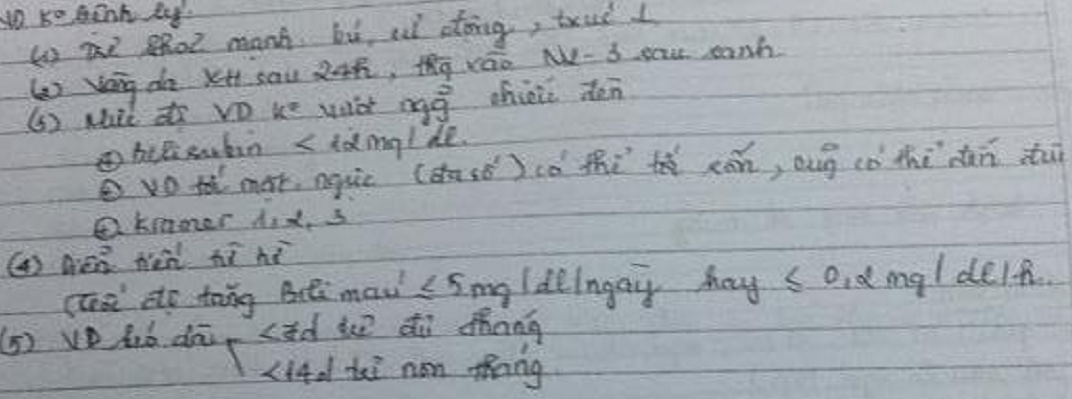 VD ko sinh lý
(1) Trẻ khoẻ mạnh, bú, cử động, txuc
(2) Vàng da XH sau 24h, thg vào N2-3 sau sanh
(3) Mức độ VD ko vượt ngưỡng chiếu đèn
⊕ bilirubin < 12mg/dl.
⊕ VD tới mặt, ngực (đa số) có thể tới rốn, cũng có thể đến đùi
⊕ Kramer 1, 2, 3
(4) Diễn tiến từ từ
(Tốc độ tăng Bili máu ≤ 5mg/dl/ngày hay ≤ 0,2mg/dl/h.
(5) VD kéo dài < 7d trẻ đủ tháng
< 14d trẻ non tháng